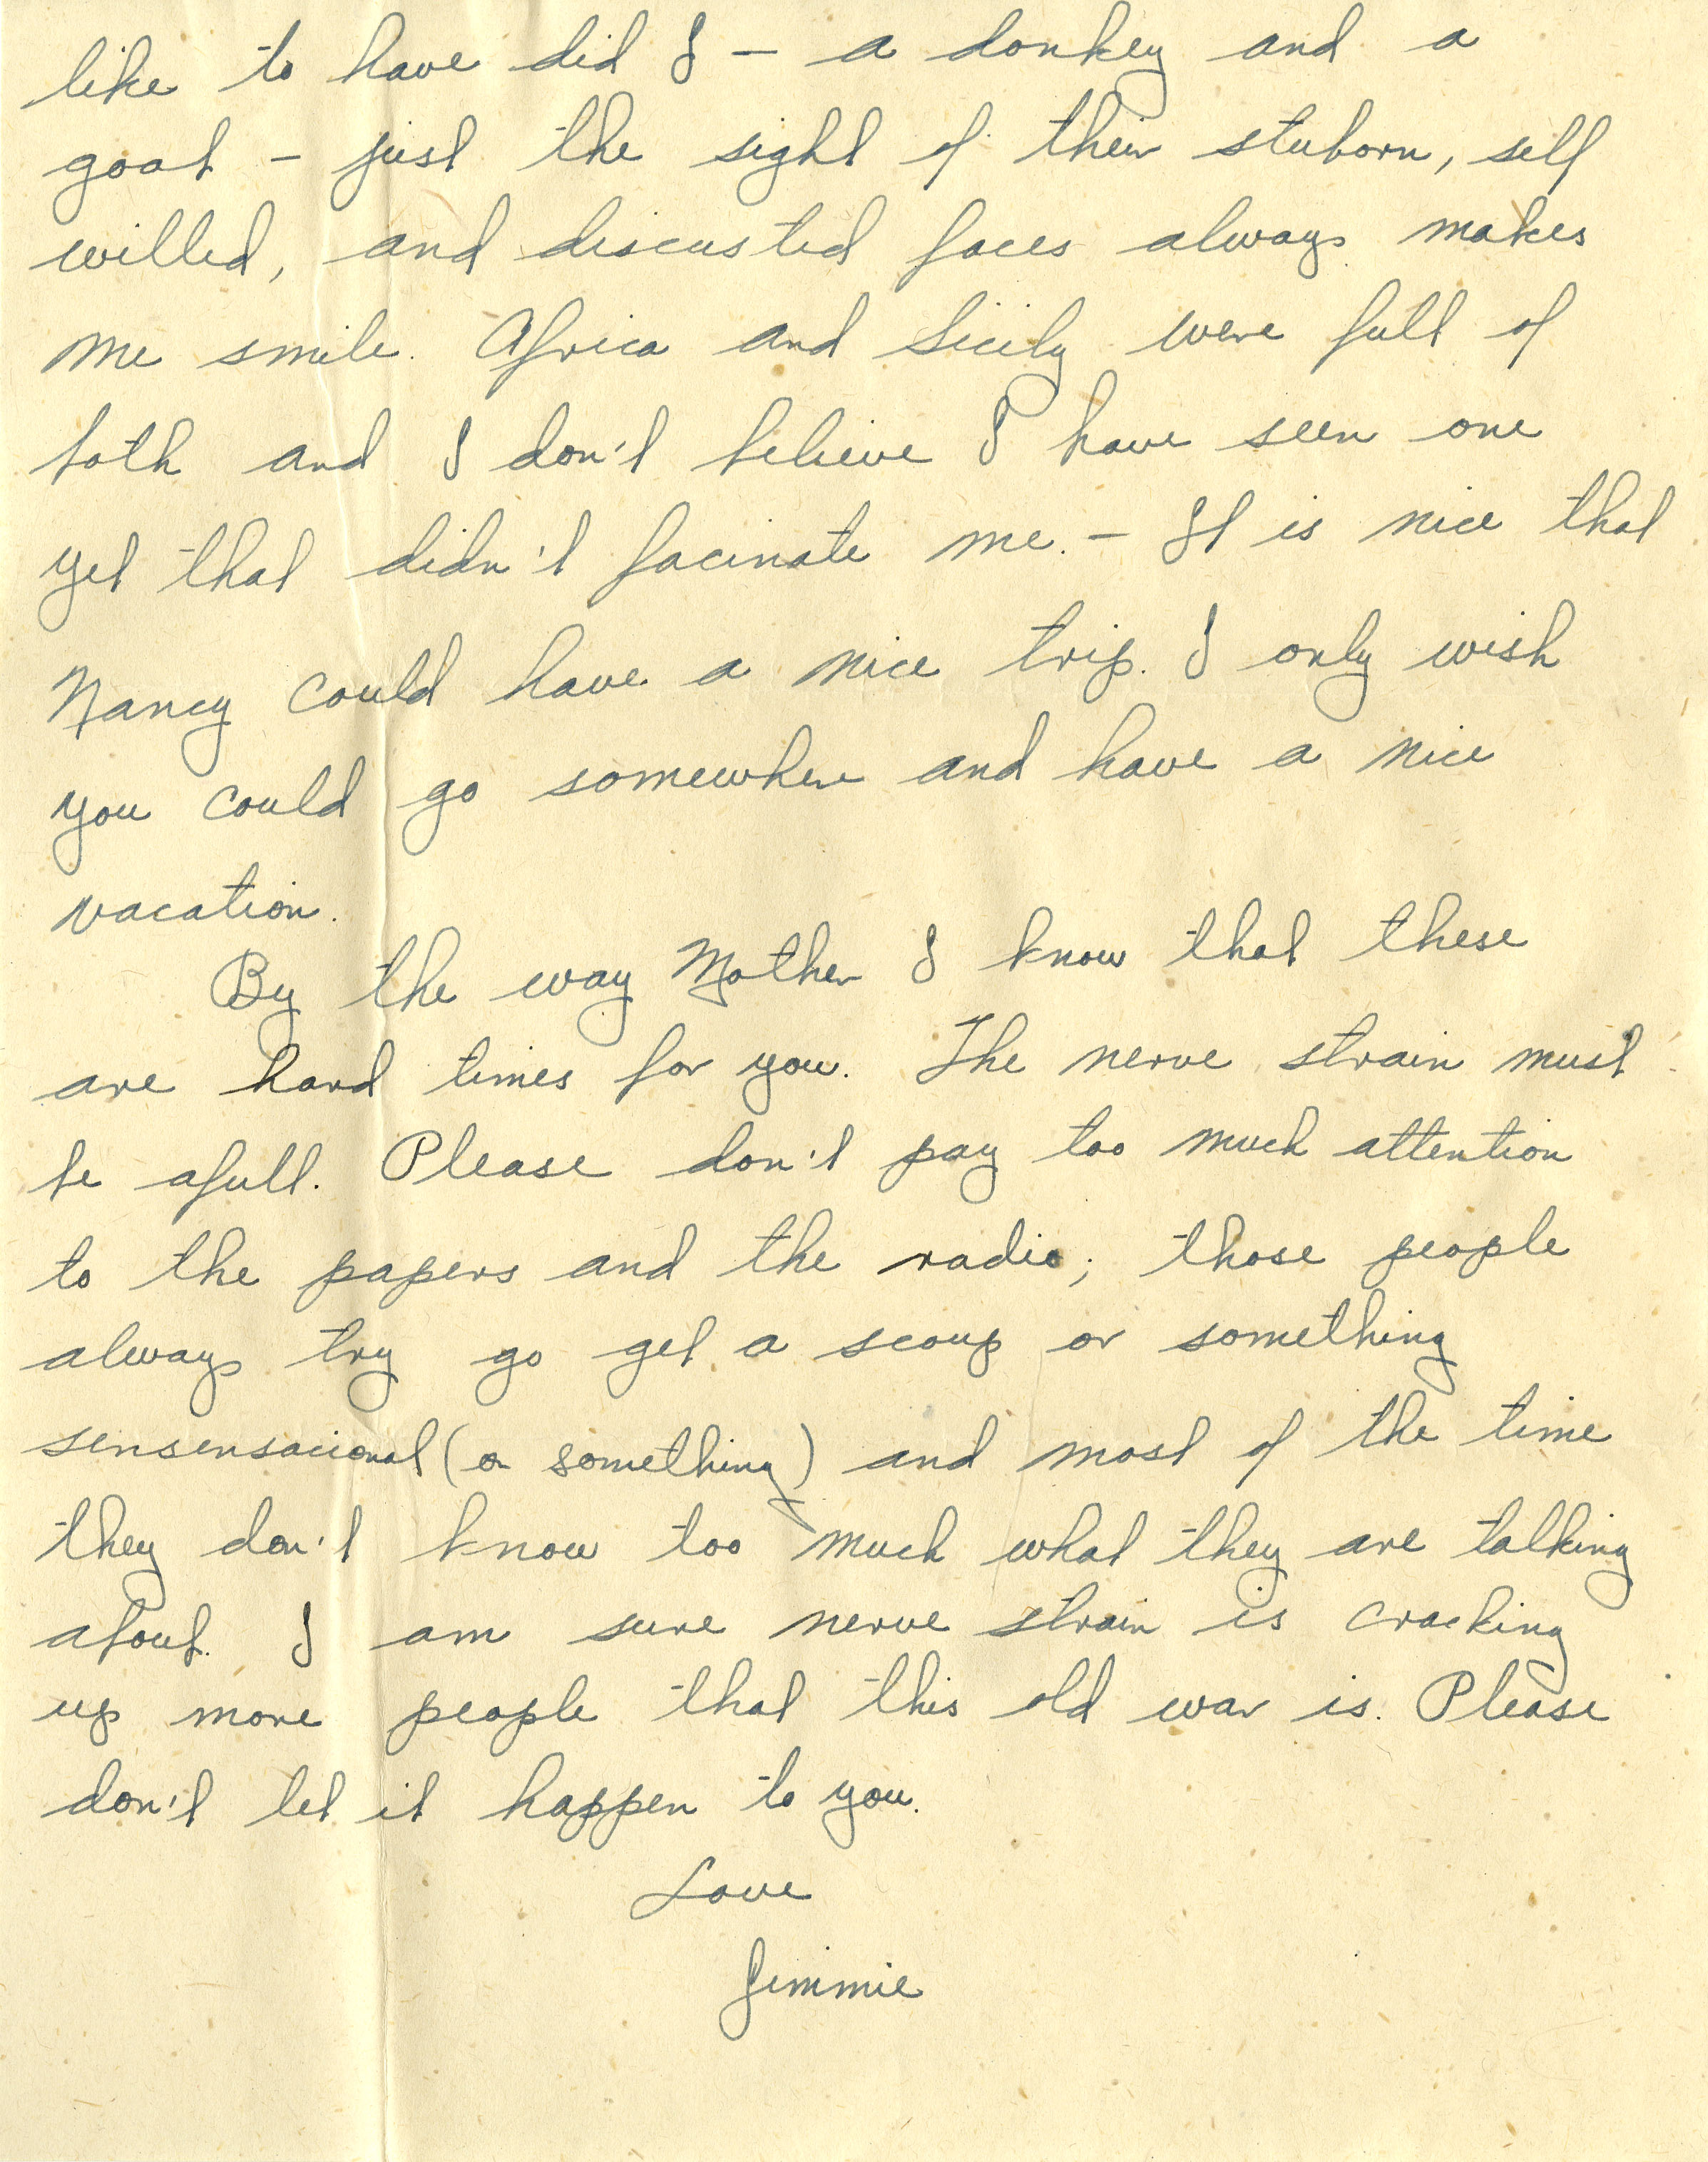 like to have did I - a donkey and a
goat - just the sight of their stuborn, self
willed, and discusted faces always makes
me smile. Africa and Sicily were full of
both and I don't believe I have seen one
yet that didn't facinate me. - It is nice that
Nancy could have a nice trip. I only wish
you could go somewhere and have a nice
vacation.
By the way Mother I know that these
are hard times for you. The nerve strain must
be afull. Please don't pay too much attention
to the papers and the radio; those people
always try go get a scoup or something
sensensacional (or something) and most of the time
they don't know too much what they are talking
about. I am sure nerve strain is cracking
up more people that this old war is. Please
don't let it happen to you.
Love
Jimmie